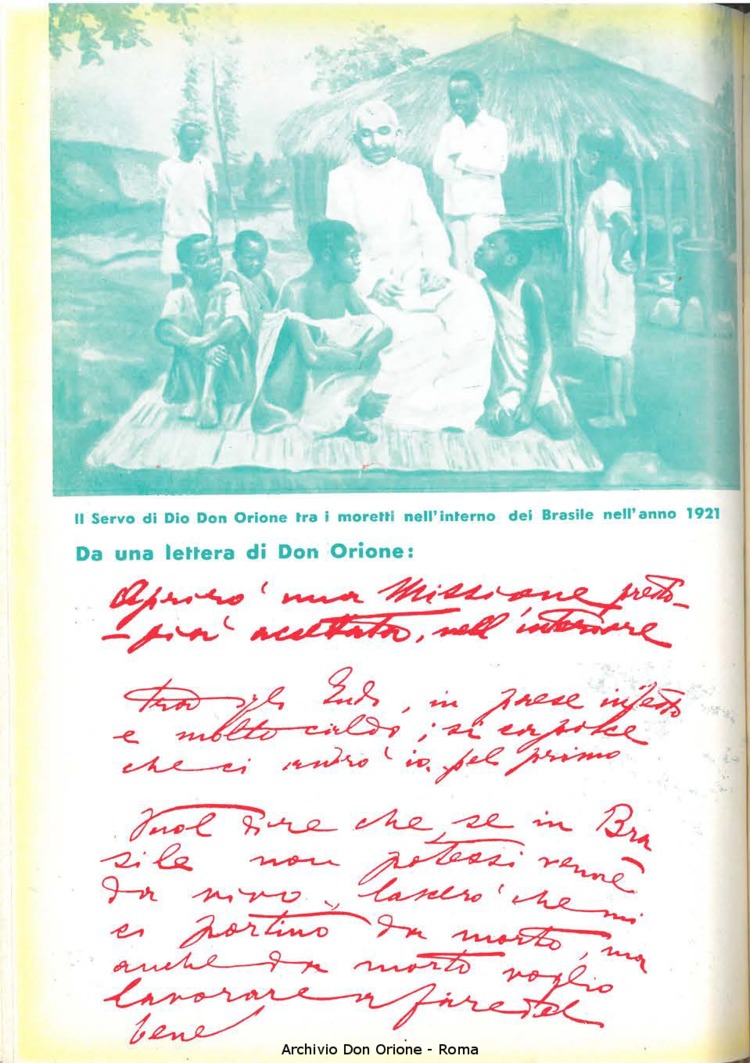 Il Servo di Dio Don Orione tra i moretti nell'interno dei Brasile nell'anno 1921
Da una lettera di Don Orione:
Aprirò una Missione presto-
- già accettata, nell'interiore
tra gli Indi, in paese infetto
e molto caldo; si capisce
che ci andrò io pel primo
Vuol dire che, se in Bra
sile non potessi venire
da vivo, lascerò che mi
ci portino da morto, ma
anche da morto voglio
lavorare a fare del
bene
Archivio Don Orione - Roma